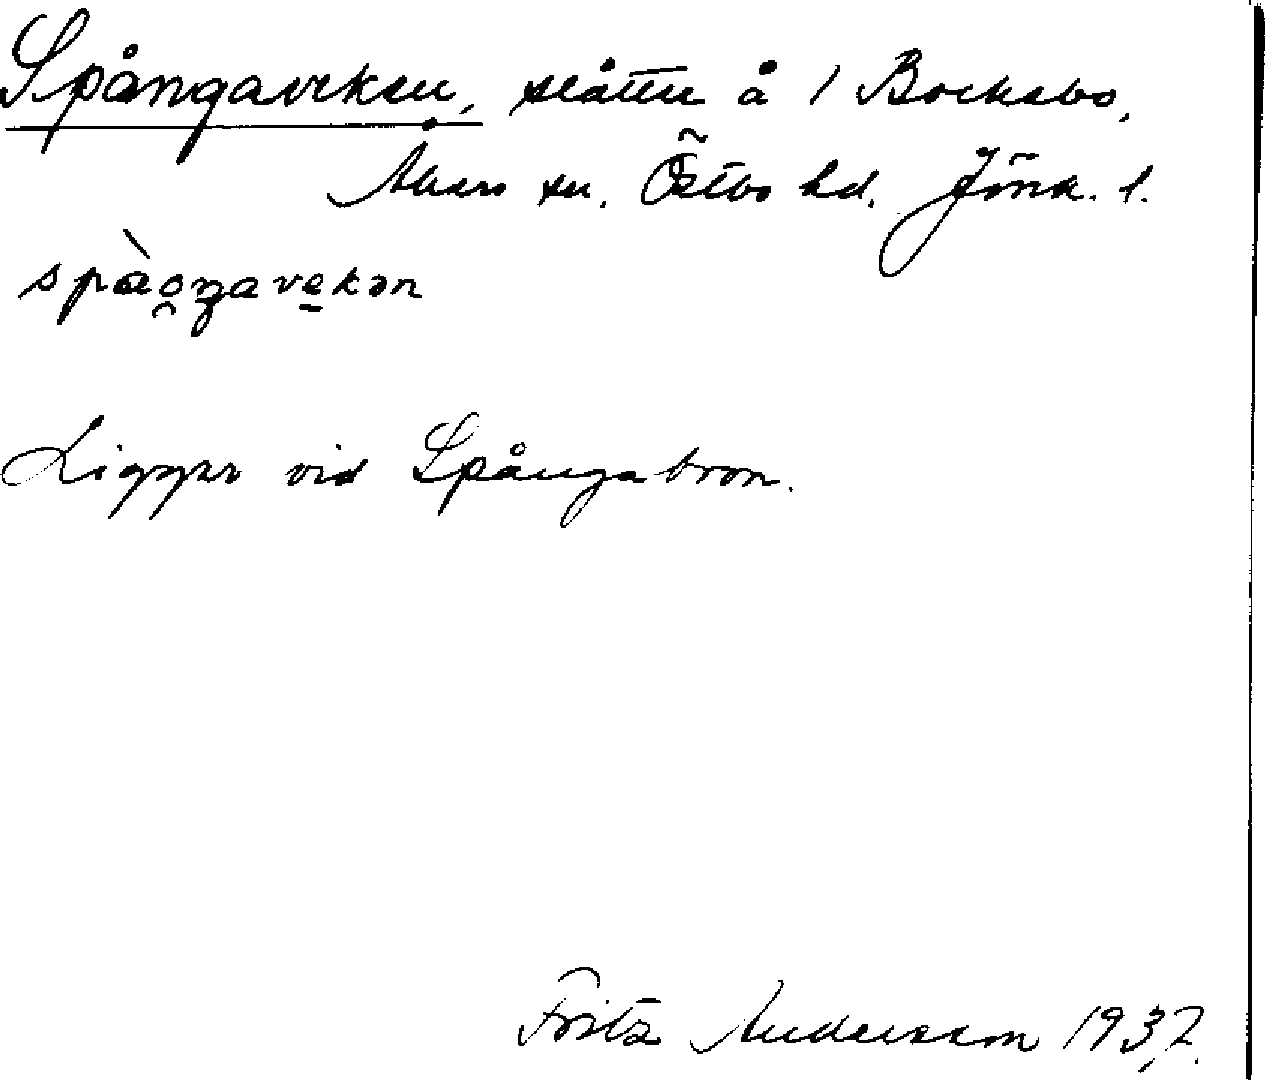 Spångaviken, slåtter å 1 Bocksbo,
Åkers sn. Östbo hd. Jönk. l.
spàongavekən
Ligger vid Spångabron.
Fritz Andersson 1937.